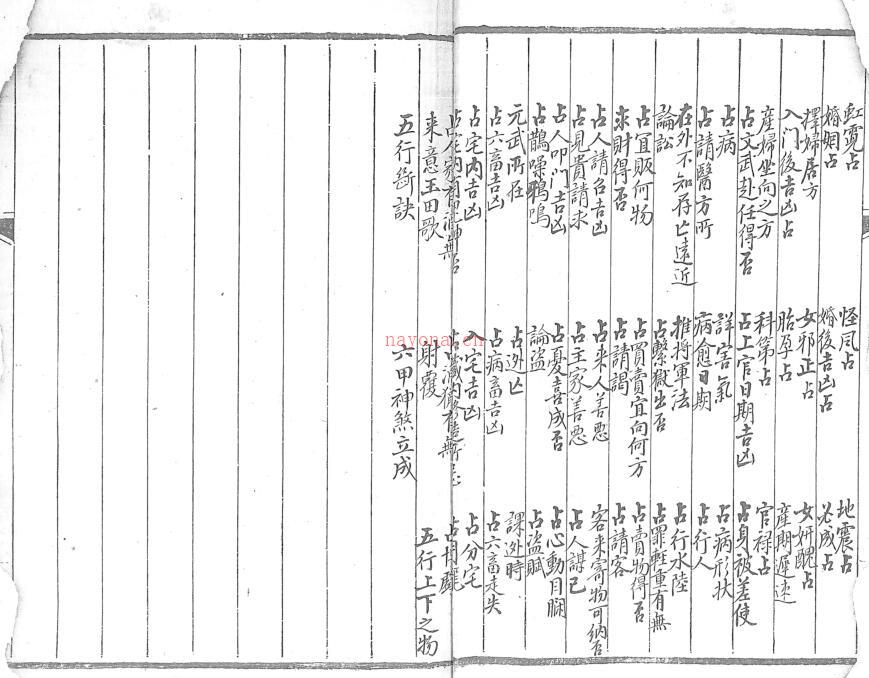 虹霓占 怪风占 地震占
婚姻占 婚後吉凶占 必成占
擇婦居方 女邪正占 女妍醜占
入门後吉凶占 胎孕占 産期遲速
産婦坐向之方 科第占 官禄占
占文武赴任得否 占上官日期吉凶 占身被差使
占病 詳害氣 占病形状
占請醫方所 病愈日期 占行人
在外不知存亡遠近 推将軍法 占行水陸
論訟 占繫獄出否 占罪輕重有無
占宜販何物 占買賣宜向何方 占賣物得否
求財得否 占請謁 占請客
占人請召吉凶 占来人善惡 客来寄物可納否
占見貴請求 占主家善悪 占人謀己
占人叩门吉凶 占憂喜成否 占心動目瞤
占鵲噪鴉鳴 論盜 占盜賊
元武所在 占逃亡 課逃時
占六畜吉凶 占病畜吉凶 占六畜走失
占宅内吉凶 入宅吉凶 占分宅
来意玉田歌 射覆 五行上下之物
五行斷訣 六甲神煞立成
nayona.cn